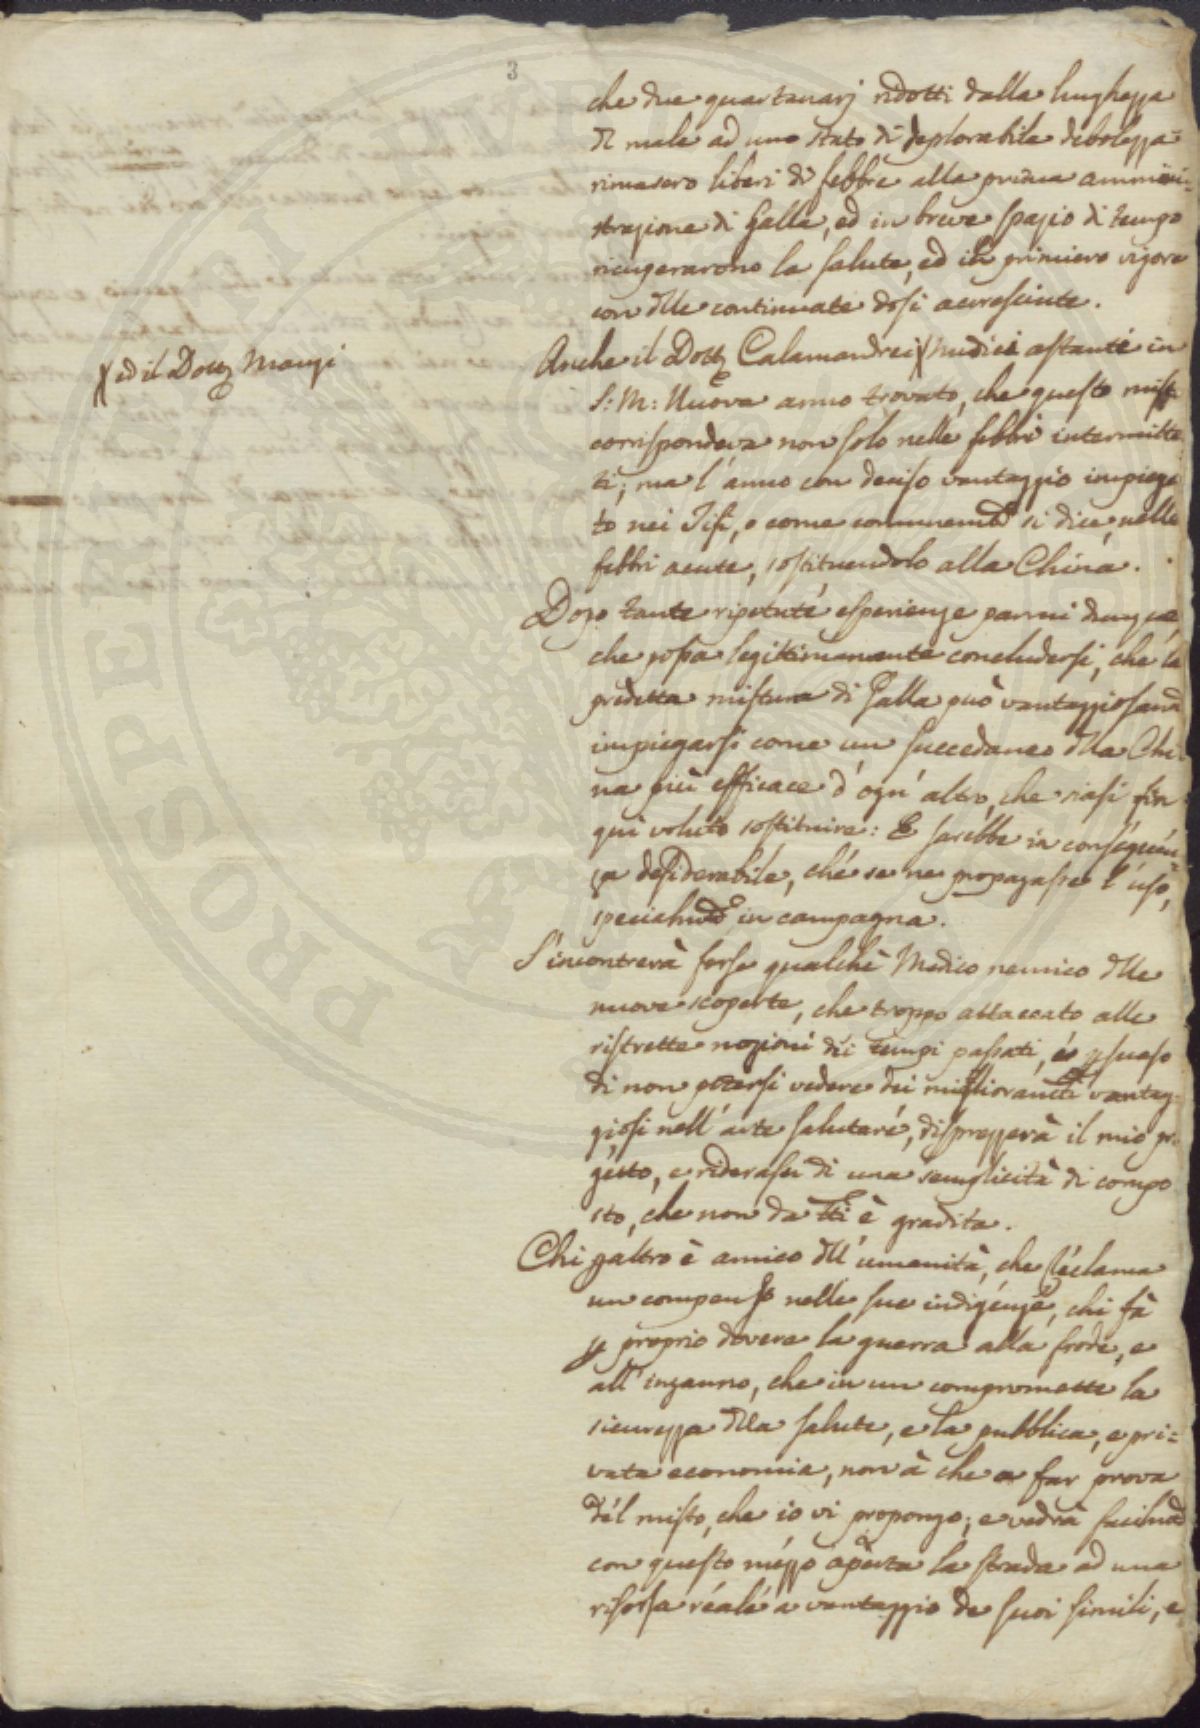 3
che due quartanarj ridotti dalla lunghezza
di male ad uno stato di deplorabile debolezza
rimasero liberi di febbre alla prima ammini-
strazione di Galla, ed in breve spazio di tempo
ricuperarono la salute, ed il primiero vigore
con dlle continuate dosi accresciute.
Anche il Dott.e Calamandrei χ Medici astanti in
χ ed il Dott.e Manzi
S: M: Nuova anno trovato, che questo mist.
corrispondeva non solo nelle febbri intermitte
ti; ma l'anno con deciso vantaggio impiega
to nei Tifi, o come comunem.te si dice, nelle
febbri acute, sostituendolo alla China.
Dopo tante ripetute esperienze parmi dunque
che possa legittimamente concludersi, che la
predetta mistura di Galla può vantaggiosam.
impiegarsi come un succedaneo dlla Chi-
na più efficace d'ogn'altro, che siasi fin
qui voluto sostituire: E sarebbe in conseguen-
za desiderabile, che se ne propagasse l'uso,
specialm.te in campagna.
S'incontrerà forse qualche Medico nemico dlle
nuove scoperte, che troppo attaccato alle
ristrette nozioni dei tempi passati, e psuaso
di non potersi vedere dei miglioram.ti vantag-
giosi nell'arte salutare, disprezzerà il mio pr
getto, e riderassi di una semplicità di compo
sto, che non da tti è gradita.
Chi paltro è amico dll'umanità, che reclama
un compenso nelle sue indigenze, chi fà
p proprio dovere la guerra alla frode, e
all'inganno, che in un compromette la
sicurezza dlla salute, e la pubblica, e pri-
vata economia, non à che a far prova
del misto, che io vi propongo; e vedrà facilm.
con questo mezzo aperta la strada ad una
risorsa reale a vantaggio de suoi simili, e
PROSPICIENTI